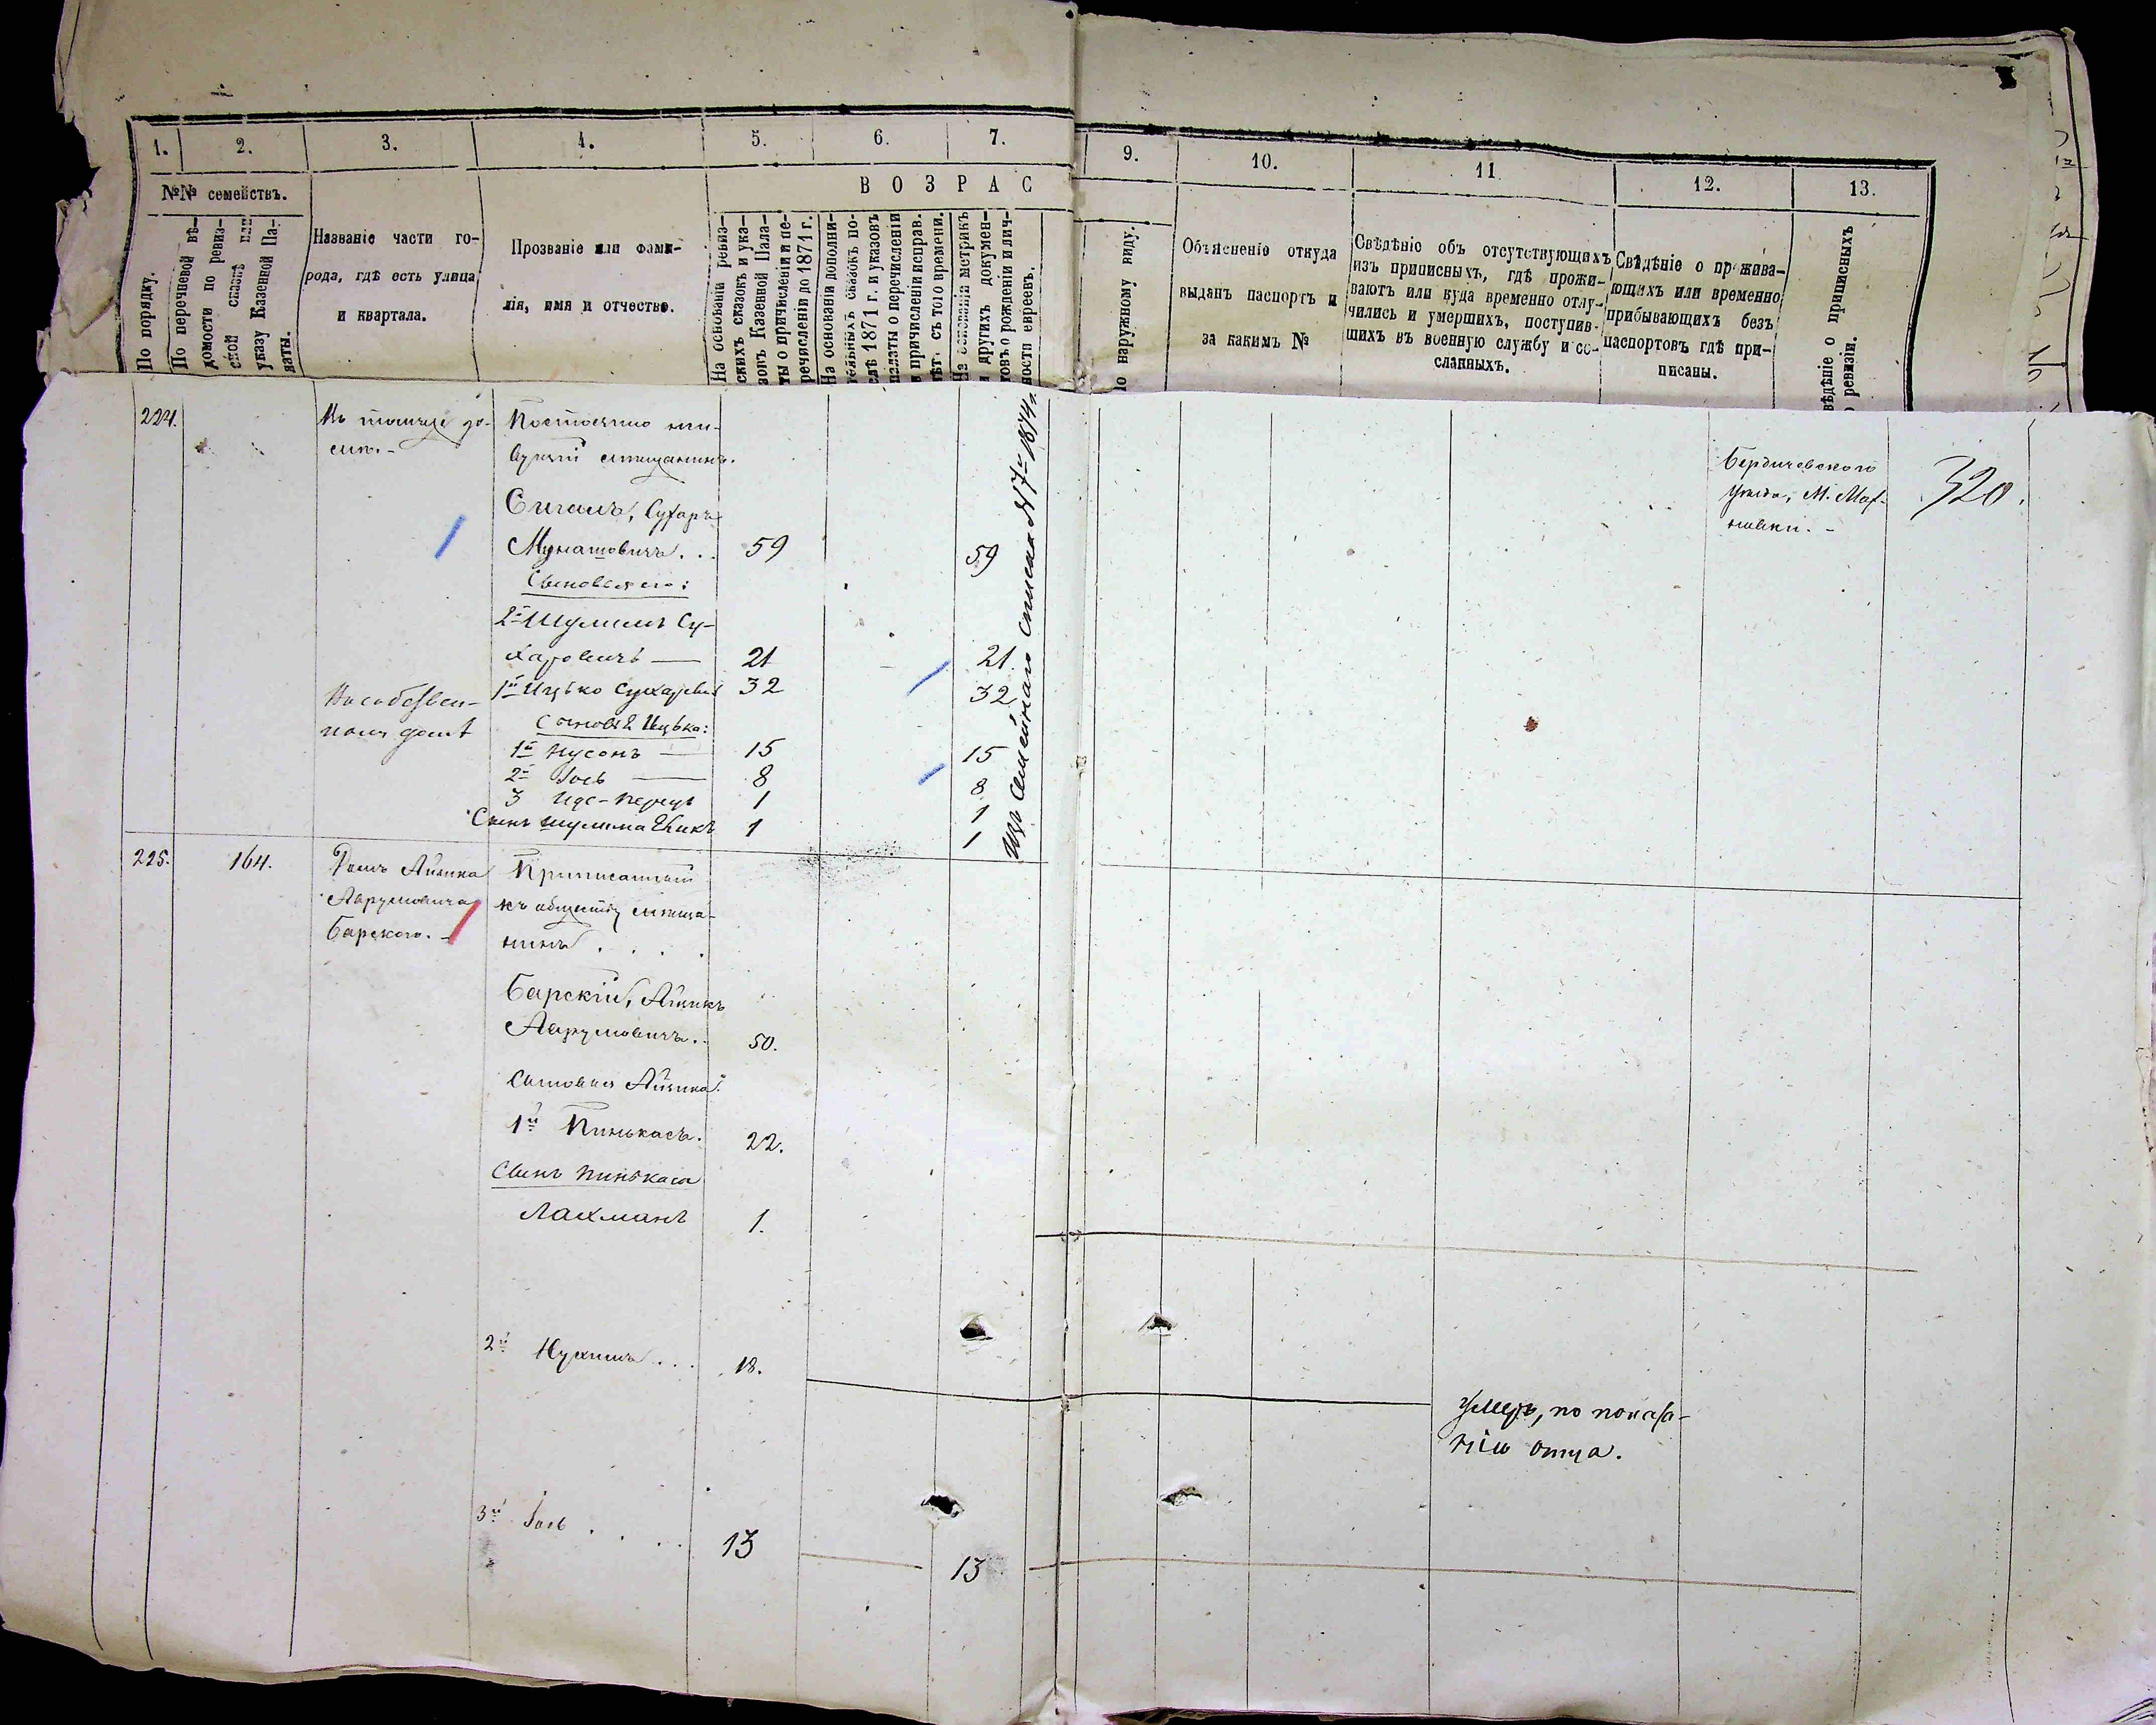 1.
2.
3.
4.
5.
6.
7.
9.
10.
11
12.
13.
№№ семействъ.
ВОЗРАС
По порядку.
По перечневой вѣ-
домости по ревиз-
ской сказкѣ или
указу Казенной Па-
латы.
Названіе части го-
рода, гдѣ есть улица
и квартала.
Прозваніе или фами-
лія, имя и отчество.
На основаніи ревиз-
скихъ сказокъ и ука-
зовъ Казенной Пала-
ты о причисленіи и пе-
речисленіи до 1871 г.
На основаніи дополни-
тельныхъ сказокъ по-
слѣ 1871 г. и указовъ
палаты о перечисленіи
и причисленіи исправ.
лѣт. съ того времени.
На основаніи метрикъ
и другихъ докумен-
товъ о рожденіи и лич-
ности евреевъ.
По наружному виду.
Объясненіе откуда
выданъ паспортъ и
за какимъ №
Свѣдѣніе объ отсутствующихъ
изъ приписныхъ, гдѣ прожи-
ваютъ или куда временно отлу-
чились и умершихъ, поступив-
шихъ въ военную службу и со-
сланныхъ.
Свѣдѣніе о прожива-
ющихъ или временно
прибывающихъ безъ
паспортовъ гдѣ при-
писаны.
вѣдѣніе о приписныхъ
о ревизіи.
224.
Въ томъже до-
мѣ.-
Постоянно жи-
вущій мѣщанинъ.
Сигалъ, Сухаръ
Мунашовичъ... 59 59
Сыновья его:
2й Шулимъ Су-
харовичъ — 21 21
1й Ицько Сухаровичъ 32 32
Въ собствен-
номъ домѣ
Сыновья Ицька:
1й Нусонъ — 15 15
2й Іось — 8 8
3 Иде-Перецъ 1 1
Сынъ Шулима 1 1
Изъ Семейнаго списка №7й 1874 г.
Бердичевскаго
уѣзда, М. Мах-
новки.-
320.
225. 164.
Домъ Айзика
Аврумовича
Барскаго.-
Приписанный
къ обществу мѣща-
нинъ....
Барскій, Айзикъ
Аврумовичъ.. 50.
Сыновья Айзика:
1й Пинькасъ. 22.
Сынъ Пинькаса
Лахманъ 1.
2й Нухимъ... 18.
Умеръ, по показа-
нію отца.
3й Іось.... 13 13